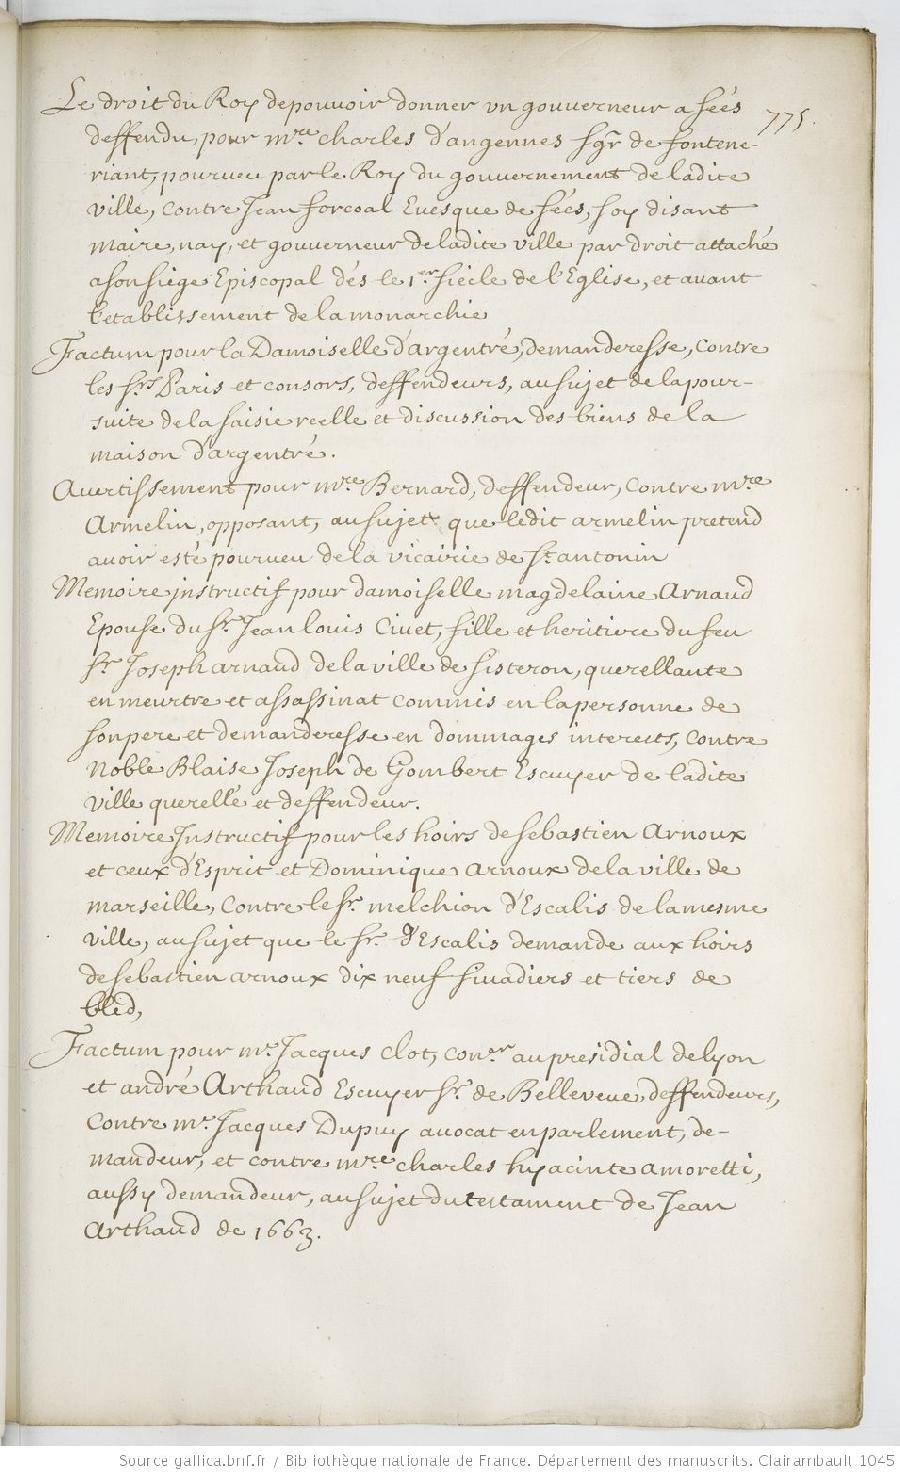 775.
Le droit du Roy de pouvoir donner un gouverneur a séés
deffendu pour mre charles d'angennes sgr de fontene-
riant, pourveu par le Roy du gouvernement de ladite
ville, contre Jean forcoal Evesque de séés, soy disant
maire, nay, et gouverneur de ladite ville par droit attaché
a son siège Episcopal dés le 1er siècle de l'Eglise, et avant
l'etablissement de la monarchie
Factum pour la Damoiselle d'argentré, demanderesse, contre
les srs Paris et consors, deffendeurs, au sujet de la pour-
suite de la saisie reelle et discussion des biens de la
maison d'argentré.
Avertissement pour mre Bernard, deffendeur, contre mre
Armelin, opposant, au sujet que ledit armelin pretend
avoir esté pourveu de la vicairie de St antonin
Memoire instructif pour damoiselle magdelaine Arnaud
Epouse du sr Jean louis Civet, fille et heritiere du feu
sr Joseph arnaud de la ville de sisteron, querellante
en meurtre et assassinat commis en la personne de
son pere et demanderesse en dommages interests, contre
Noble Blaise Joseph de Gombert Escuyer de ladite
ville querellé et deffendeur.
Memoire Instructif pour les hoirs de sebastien Arnoux
et ceux d'Esprit et Dominique Arnoux de la ville de
marseille, contre le sr melchion d'Escalis de la mesme
ville, au sujet que le sr d'Escalis demande aux hoirs
de sebastien arnoux dix neuf sivadiers et tiers de
bled,
Factum pour mr Jacques clot, coner au presidial de lyon
et andré Arthaud Escuyer sr de Belleveue deffendeurs,
contre mr Jacques Dupuy avocat en parlement, de-
mandeur, et contre mre charles hyacinte amoretti,
aussy demandeur, au sujet du testament de Jean
Arthaud de 1663.
Source gallica.bnf.fr / Bibliothèque nationale de France. Département des manuscrits. Clairambault 1045